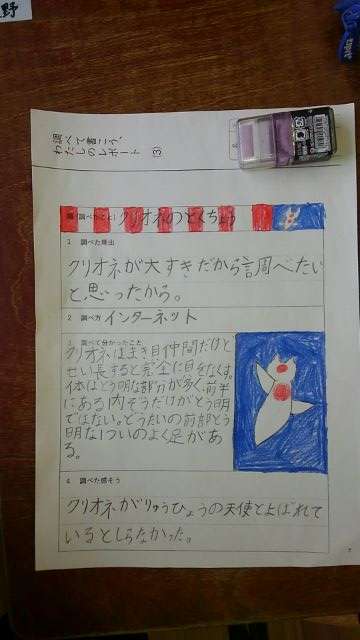 野
調べて書こう、
わたしのレポート (3)
調べたこと クリオネのとくちょう
1 調べた理由
クリオネが大すきだから調べたい
と思ったから。
2 調べ方 インターネット
3 調べて分かったこと
クリオネはまき貝の仲間だけど
せい長すると完全に貝をなくす。
体はとう明な部分が多く、前半
にある内ぞうだけがとう明
ではない。どうたいの前部とう
明な1ついのよく足があ
る。
4 調べた感そう
クリオネがりゅうひょうの天使とよばれて
いるとしらなかった。